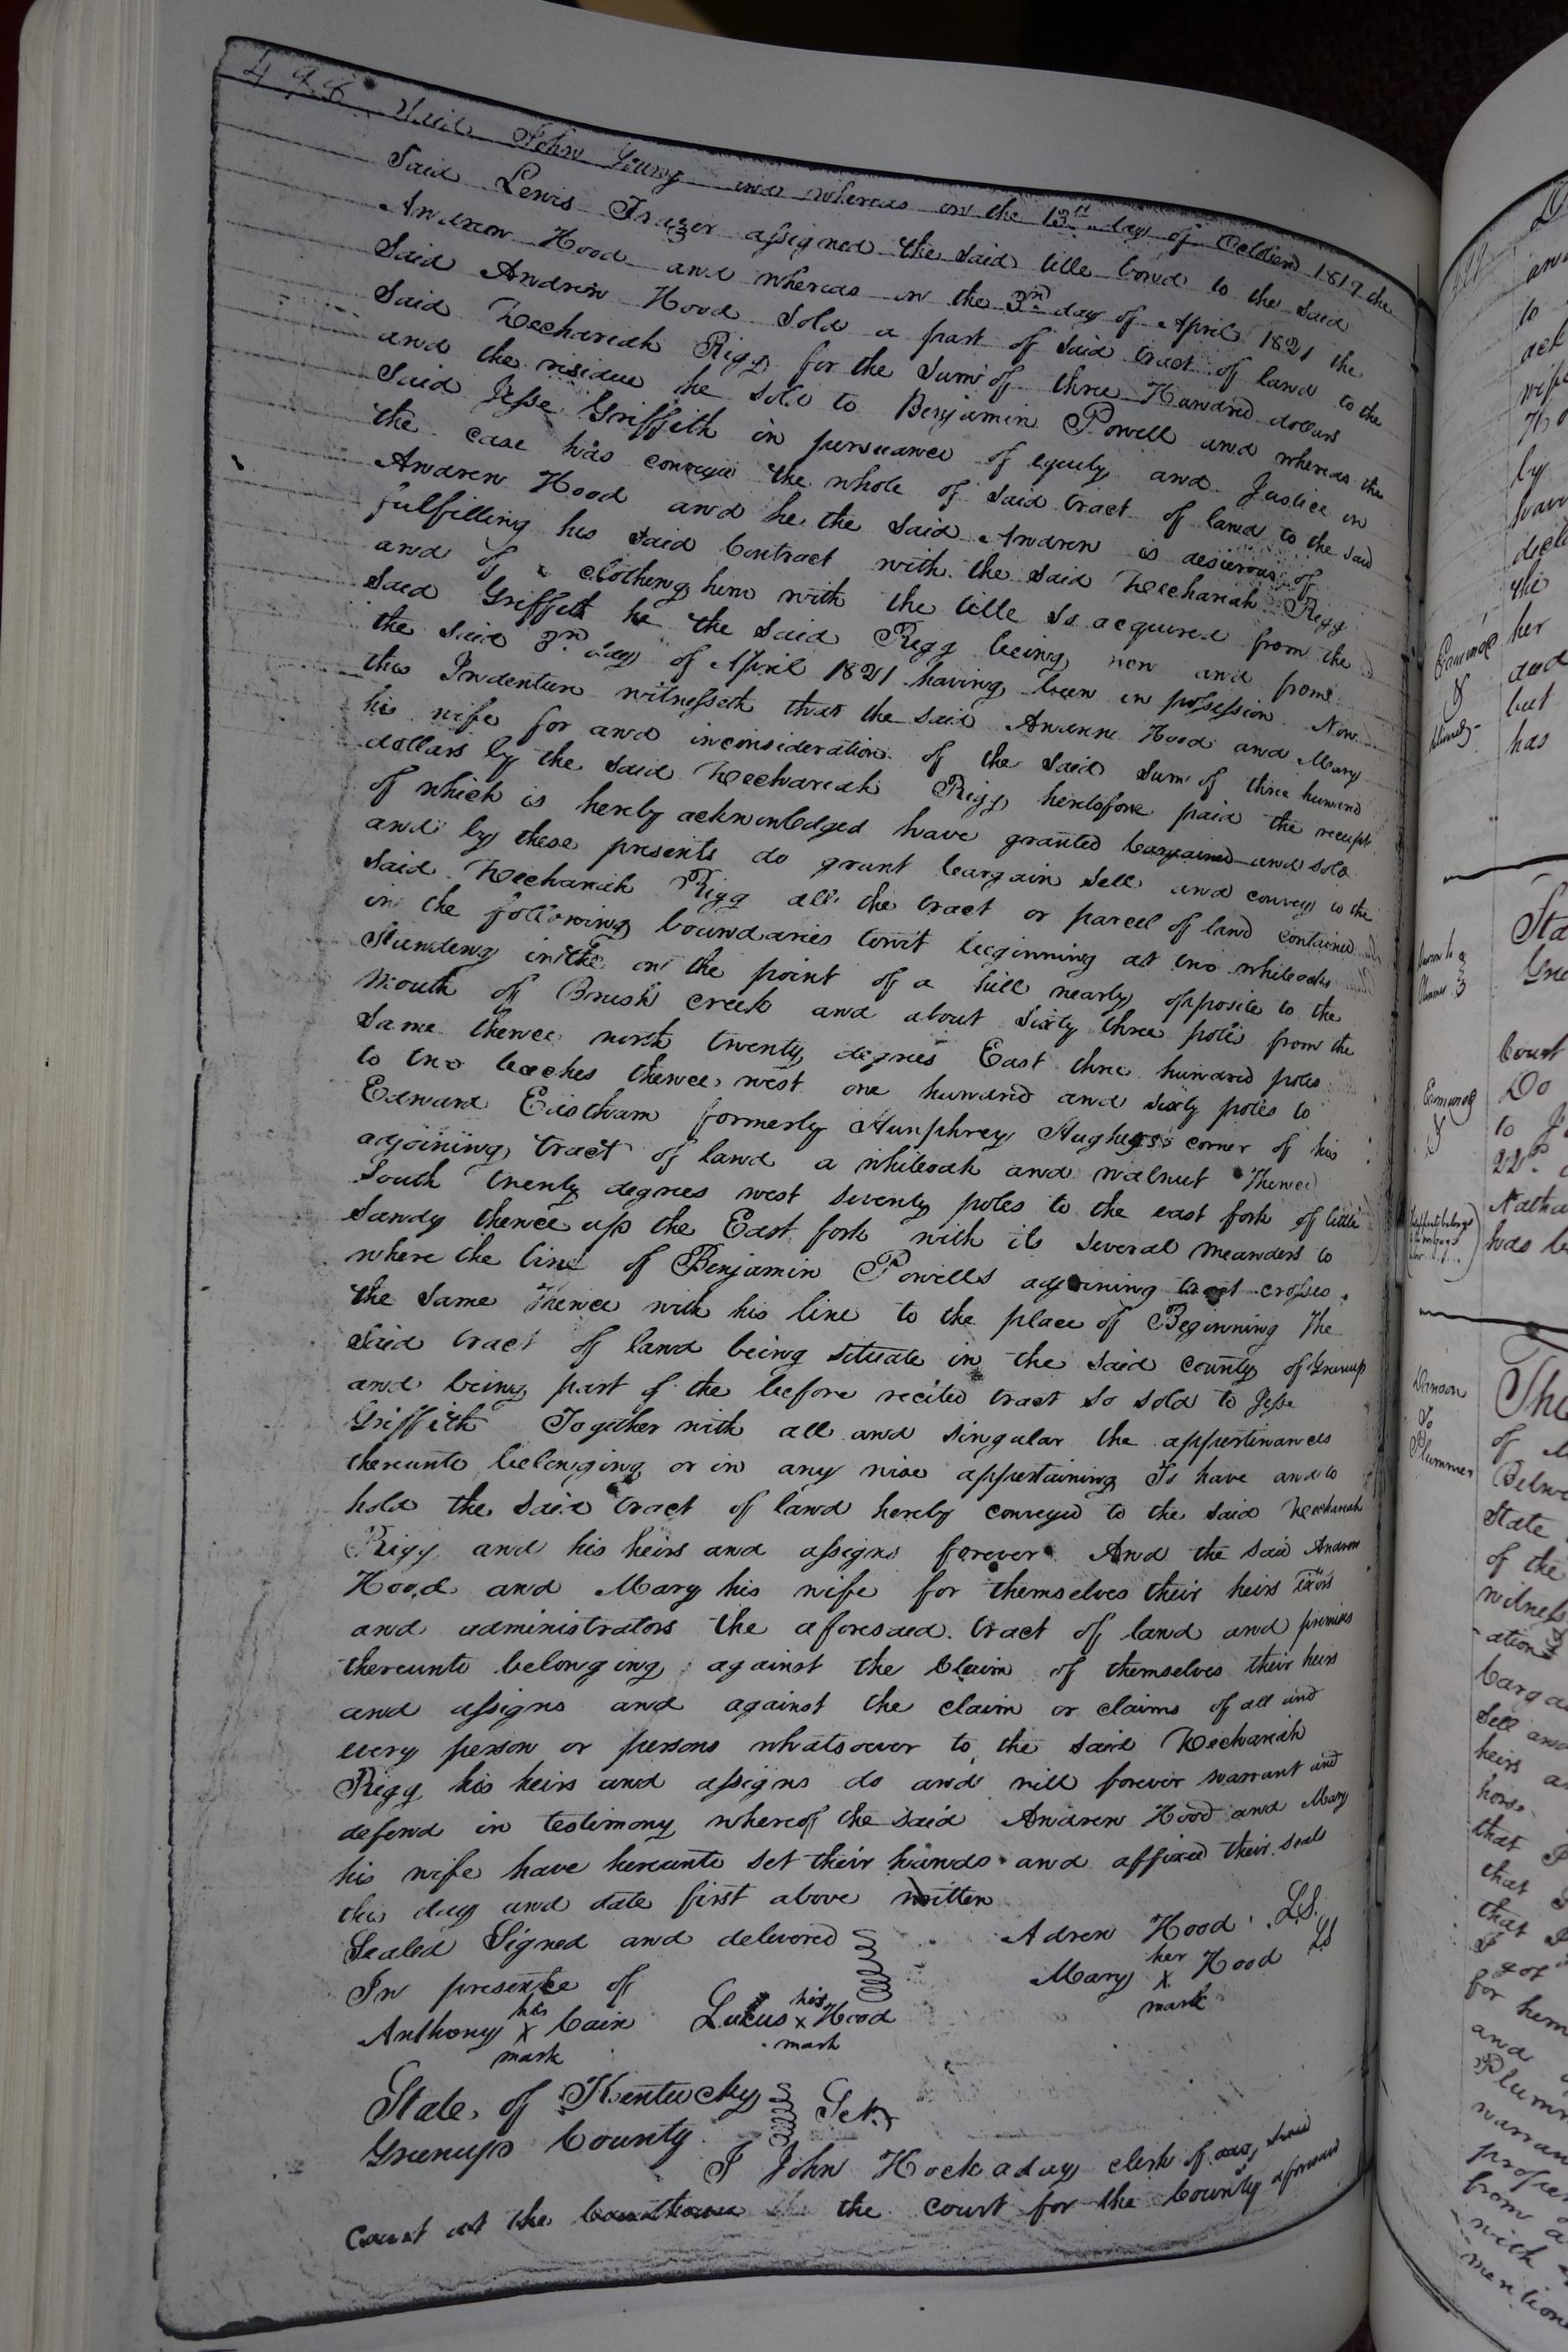 498
Said John Young and whereas on the 13th day of October 1817 the
Said Lewis Frazer assigned the said title bond to the said
Andrew Hood and whereas on the 3rd day of April 1821 the
Said Andrew Hood Sold a part of Said tract of land to the
Said Zechariah Rigg for the Sum of three Hundred dollars
and the risidue he sold to Benjamin Powell and whereas the
Said Jesse Griffeth in pursuance of equity and Justice in
the case has conveyed the whole of said tract of land to the said
Andrew Hood and he the Said Andrew is desierous of
fulfilling his said Contract with the said Zechariah Rigg
and of clothing him with the title so acquired from the
Said Griffeth he the Said Rigg being now and from
the said 3rd day of April 1821 having been in possession Now
this Indenture witnesseth that the said Andrew Hood and Mary
his wife for and inconsideration of the said Sum of three hundred
dollars by the said Zechariah Rigg heretofore paid the receipt
of which is hereby acknowledged have granted bargained and sold
and by these presents do grant bargain Sell and convey to the
Said Zechariah Rigg all the tract or parcel of land contained
in the following boundaries towit beginning at two whiteoaks
Standing on the point of a hill nearly opposite to the
Mouth of Brush Creek and about Sixty three poles from the
Same thence north twenty degrees East three hundred poles
to two beeches thence west one hundred and sixty poles to
Edward Eastham formerly Hunphrey Hughes's corner of his
adjoining tract of land a whiteoak and walnut Thence
South twenty degrees west Seventy poles to the east fork of little
Sandy thence up the East fork with its several meanders to
where the line of Benjamin Powells adjoining tract crosses
the Same Thence with his line to the place of Beginning The
Said tract of land being situate in the said county of Greenup
and being part of the before recited tract so sold to Jesse
Griffith Together with all and singular the appurtinances
thereunto belonging or in any wise appertaining To have and to
hold the said tract of land hereby conveyed to the said Zechariah
Rigg and his heirs and assigns forever And the said Andrew
Hood and Mary his wife for themselves their heirs exors
and administrators the aforesaid tract of land and premises
thereunto belonging against the Claim of themselves their heirs
and assigns and against the claim or claims of all and
every person or persons whatsoever to the said Zechariah
Rigg his heirs and assigns do and will forever warrant and
defend in testimony whereof the said Andrew Hood and Mary
his wife have hereunto set their hands and affixed their seals
this day and date first above written
Sealed Signed and delivered Adrew Hood L.S.
In presence of Mary her X mark Hood LS
Anthony his X mark Cain Lucus his X mark Hood
State of Kentucky
Greenup County Sct
I John Hockaday clerk of said
Court at the the court for the County aforesaid
Examined
&
Examined
&
Dawson
To
Plummer
her
and
but
has
Sta
Court
Do
to
Natha
has
The
of
State
of the
witness
Sell and
heirs
horse
that
that
that
I got
for him
and
Plum
from a
with
mention